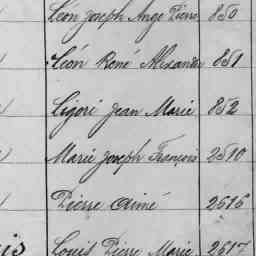 Léon Joseph Ange Pierre 850
Léon René Alexandre 851
Ligori Jean Marie 852
Marie Joseph François 2510
Pierre Aimé 2516
Louis Pierre Marie 2617